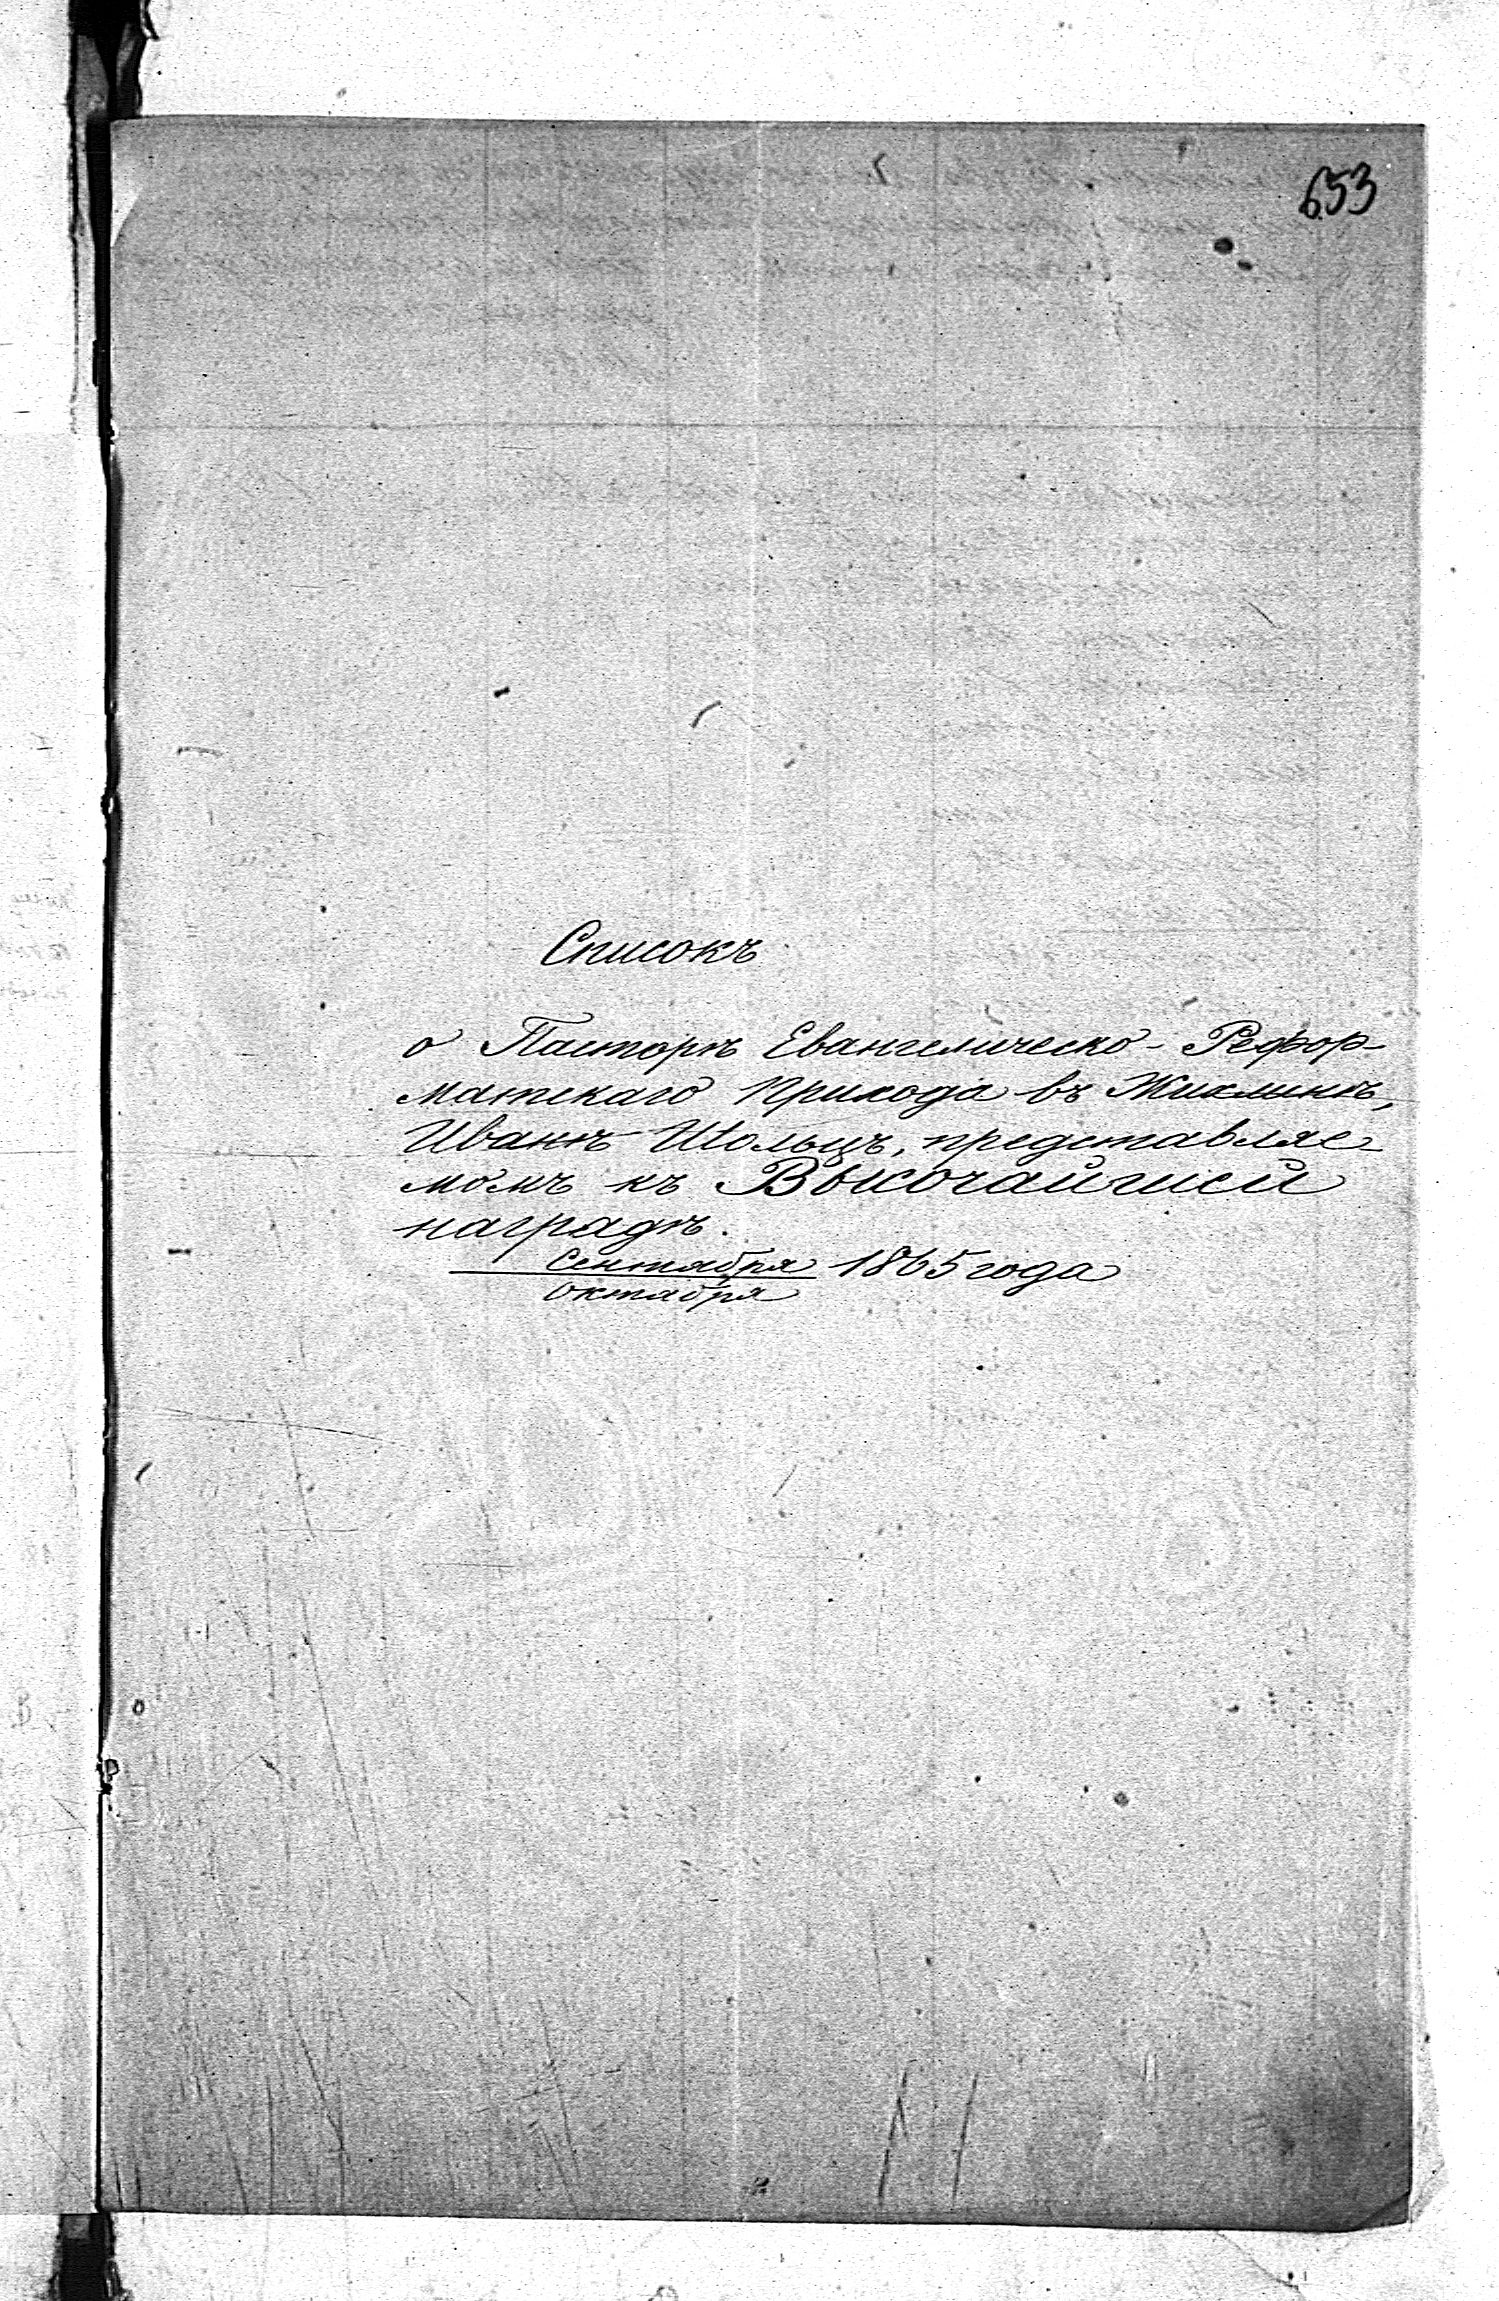 653
Списокъ
о Пасторѣ Евангелическо-Рефор-
матскаго Прихода въ Жихлинѣ,
Иванѣ Шольцъ, представляе-
момъ къ Высочайшей
наградѣ.
Сентября 1865 года
Октября